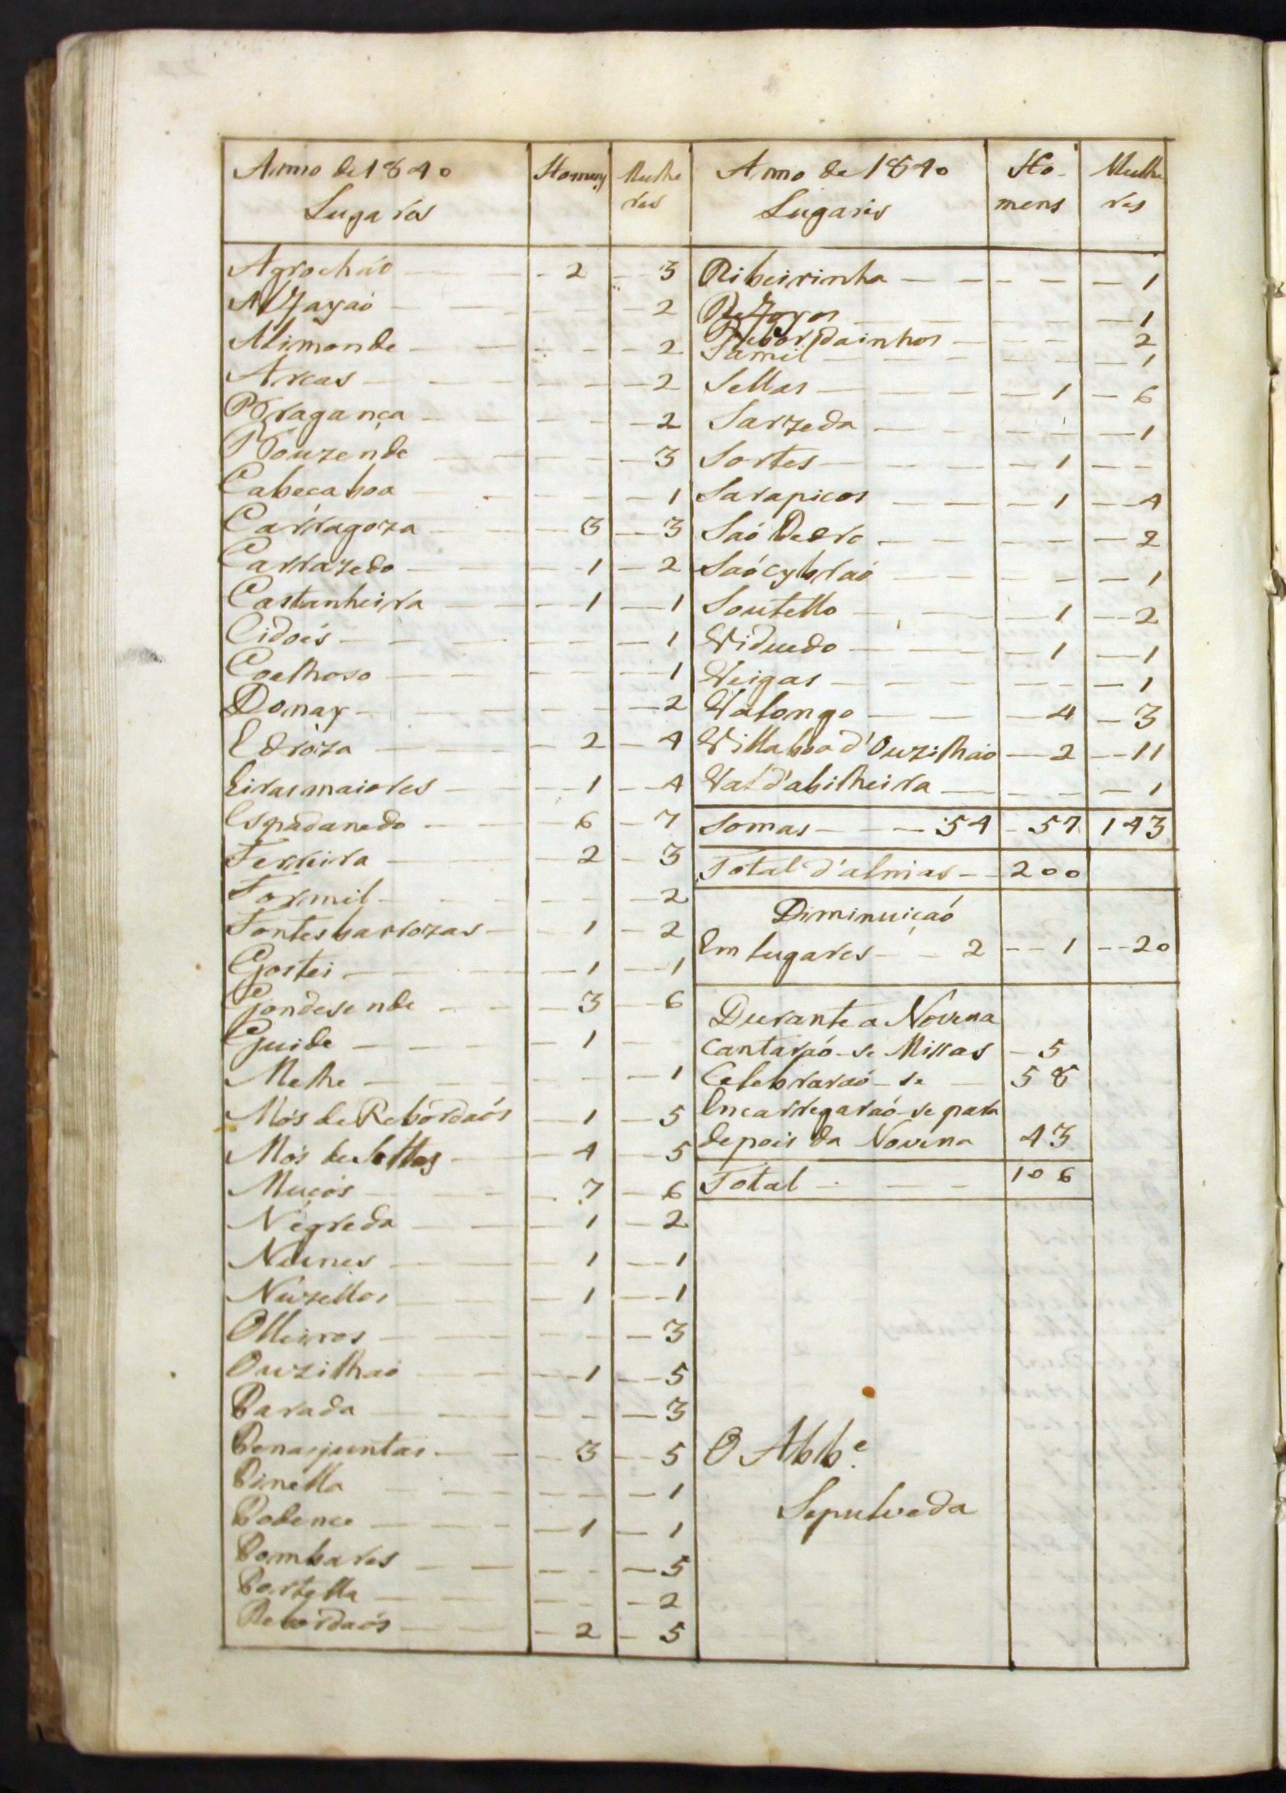 Anno de 1840 Lugares Homens Mulheres
Agrochaó 2 3
Alfayaó 2
Alimonde 2
Arcas 2
Bragança 2
Bouzende 3
Cabeca boa 1
Carragoza 3 3
Carrazedo 1 2
Castanheira 1 1
Cidoẽs 1
Coelhoso 1
Donay 2
Edroza 2 4
Eiras maiores 1 4
Espadanedo 6 7
Ferreira 2 3
Formil 2
Fontes barrozas 1 2
Gostei 1 1
Gondesende 3 6
Guide 1
Melhe 1
Mós de Rebordaós 1 5
Mós de Sellas 4 5
Muçós 7 6
Negreda 1 2
Nunes 1 1
Nuzellos 1 1
Olleiros 3
Ouzilhaó 1 5
Parada 3
Penasjuntas 3 5
Pinella 1
Podence 1 1
Pombares 5
Portella 2
Rebordaós 2 5
Anno de 1840 Lugares Homens Mulheres
Ribeirinha 1
Refoyos 1
Rebordainhos 2
Samil 1
Sellas 1 6
Sarzeda 1
Sortes 1
Sarapicos 1 4
Saó Pedro 2
Saó cybraó 1
Soutello 1 2
Viduedo 1 1
Veigas 1
Valongo 4 3
Villaboa d'Ouzilhaó 2 11
Val d'abilheira 1
Somas 54 57 143
Total d'almas 200
Diminuiçaó
Em lugares 2 1 20
Durante a Novena
Cantaraó-se Missas 5
Celebraraó-se 58
Encarregaraó-se para
depois da Novena 43
Total 106
O Abb.e
Sepulveda